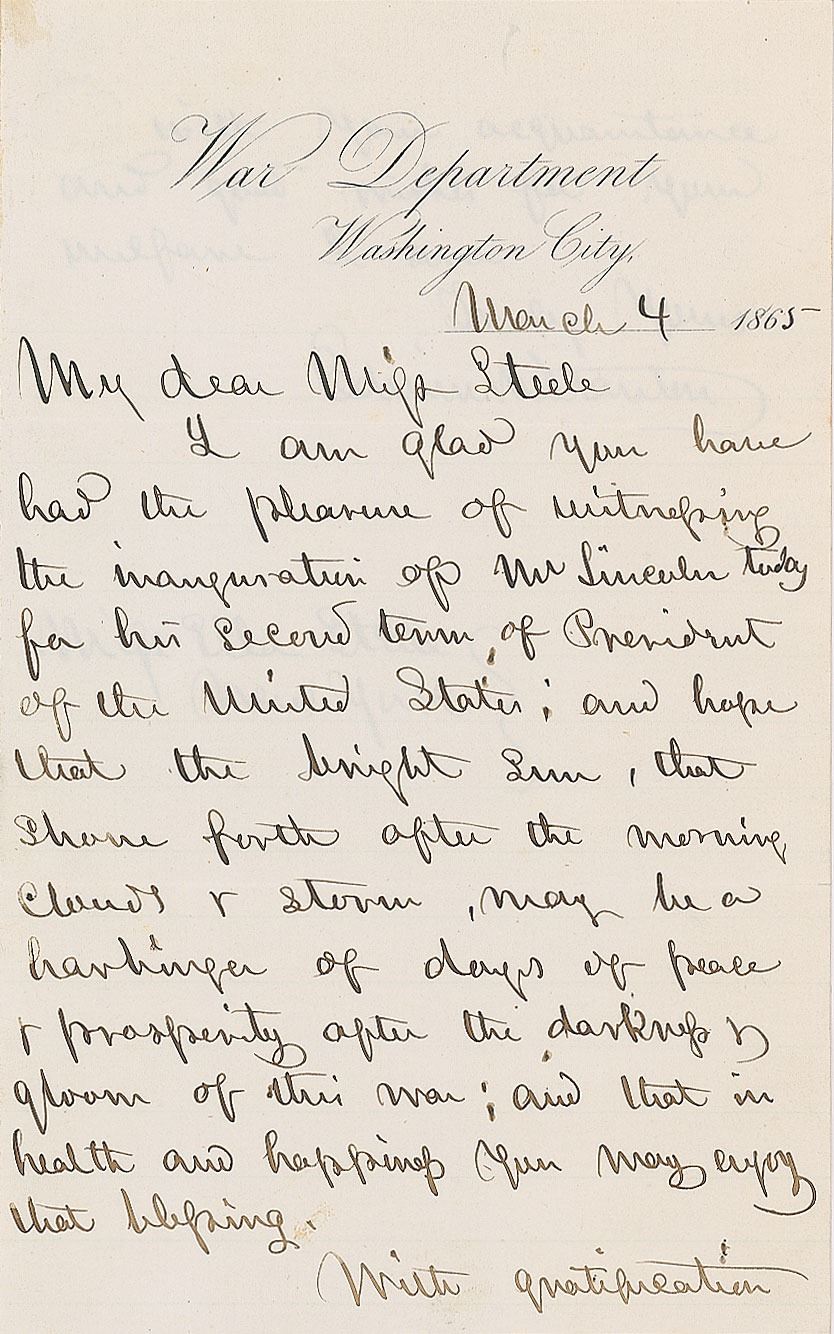 War Department
Washington City,
March 4 1865
My dear Miss Steele
I am glad you have
had the pleasure of witnessing
the inauguration of Mr Lincoln today
for his second term of President
of the United States; and hope
that the bright Sun, that
Shone forth after the morning
Clouds & storm, may be a
harbinger of days of peace
& prosperity after the darkness &
gloom of this war; and that in
health and happiness you may enjoy
that blessing.
With gratification